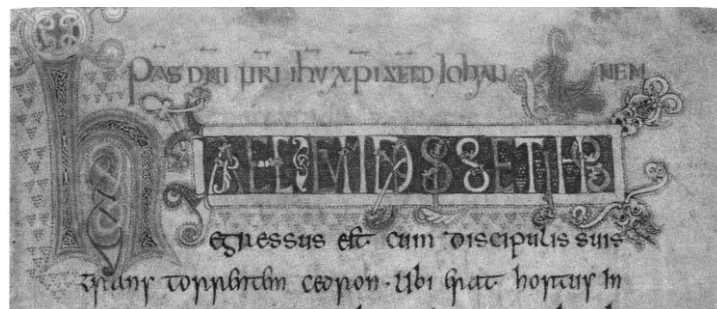 PAS DNI NRI IHU XPI SECD IOHANNEM
h SSET IHS
egressus est cum discipulis suis
trans torrentem cedron · Ubi erat hortus in